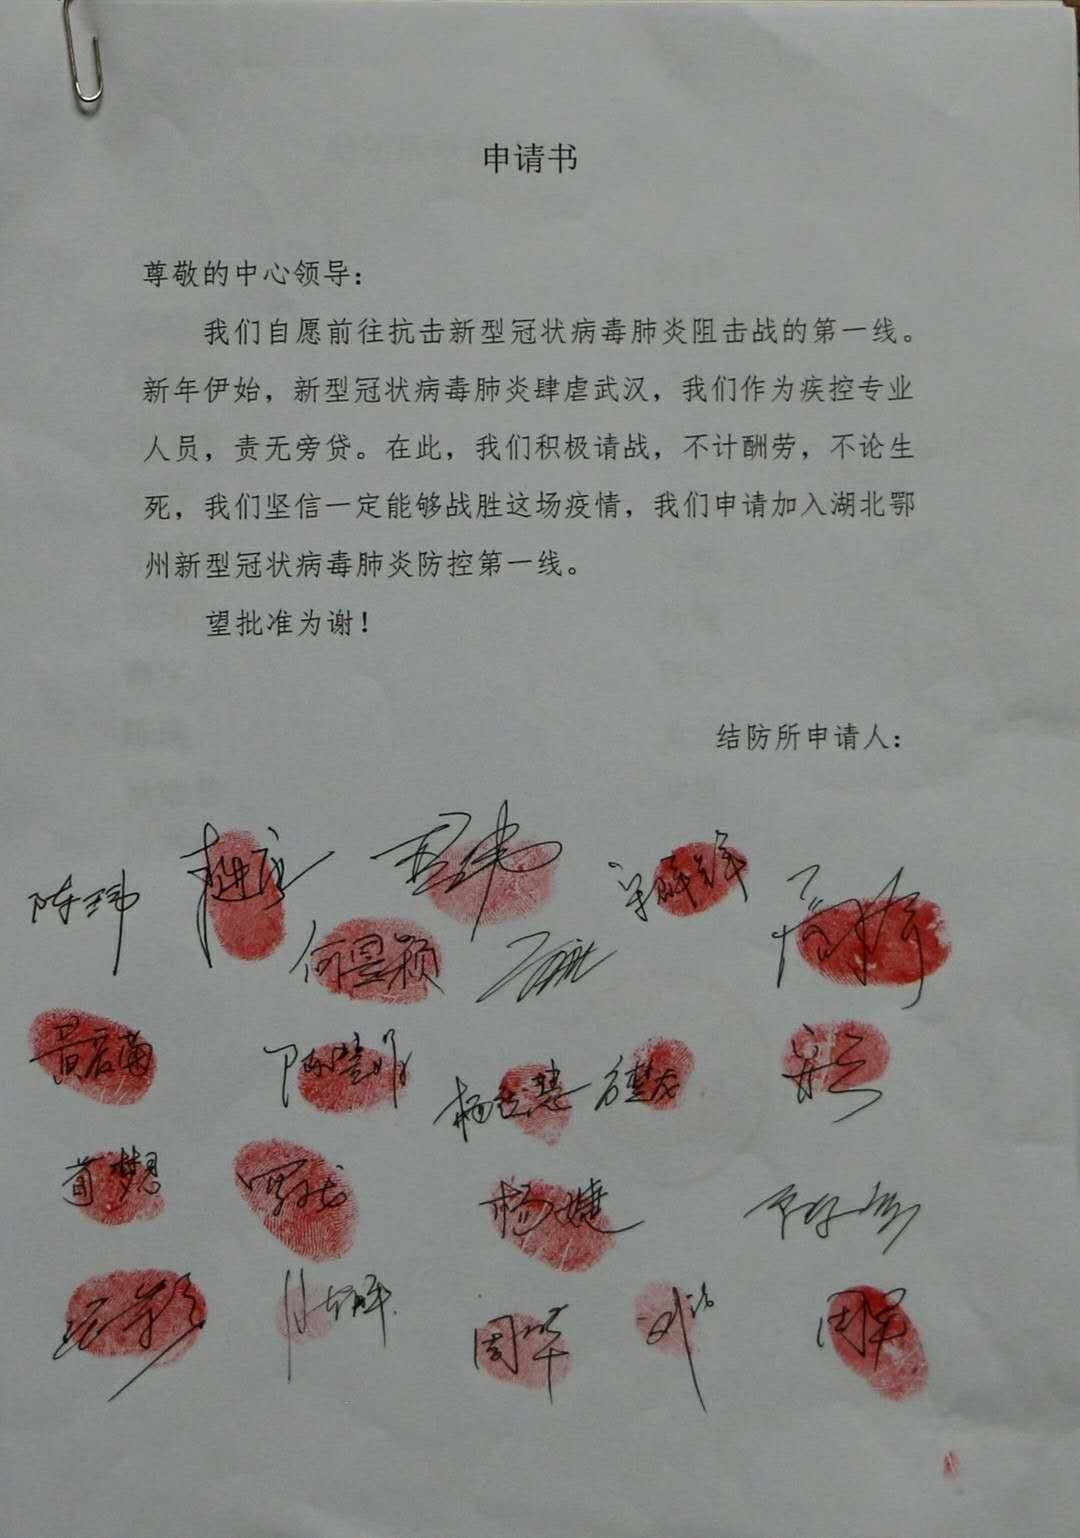 申请书
尊敬的中心领导：
我们自愿前往抗击新型冠状病毒肺炎阻击战的第一线。
新年伊始，新型冠状病毒肺炎肆虐武汉，我们作为疾控专业
人员，责无旁贷。在此，我们积极请战，不计酬劳，不论生
死，我们坚信一定能够战胜这场疫情，我们申请加入湖北鄂
州新型冠状病毒肺炎防控第一线。
望批准为谢！
结防所申请人：
陈玮
何昱颖
黄爱菊
杨婕
周华 周军